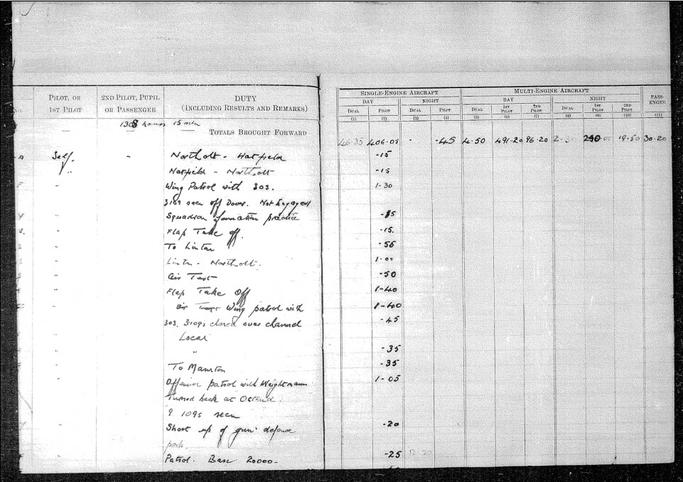 SINGLE-ENGINE AIRCRAFT MULTI-ENGINE AIRCRAFT
PILOT, OR 2ND PILOT, PUPIL DUTY DAY NIGHT DAY NIGHT PASS-
1ST PILOT OR PASSENGER (INCLUDING RESULTS AND REMARKS) DUAL PILOT DUAL PILOT DUAL 1ST PILOT 2ND PILOT DUAL 1ST PILOT 2ND PILOT ENGER
(1) (2) (3) (4) (5) (6) (7) (8) (9) (10) (11)
1308 hours 15 min
— — TOTALS BROUGHT FORWARD
46.35 406.05 - -45 4.50 491.20 96.20 19.50 30.20
Self - Northolt - Hatfield -15
" - Hatfield - Northolt -15
" - Wing Patrol with 303. 1-30
3109 seen off Dover. Not Engaged
Squadron formation practice
Flap Take off. -15
To Linton -55
Linton - Northolt.
Air Test -50
Flap Take Off 1-40
Wing patrol with 1-40
303. 3109s chased over channel -45
Local
" -35
To Manston -35
Offensive patrol with Weightmann 1-05
Turned back at Ostend.
9 109s seen
Shoot up of gun defence -20
posts.
Patrol. Base 20000- -25